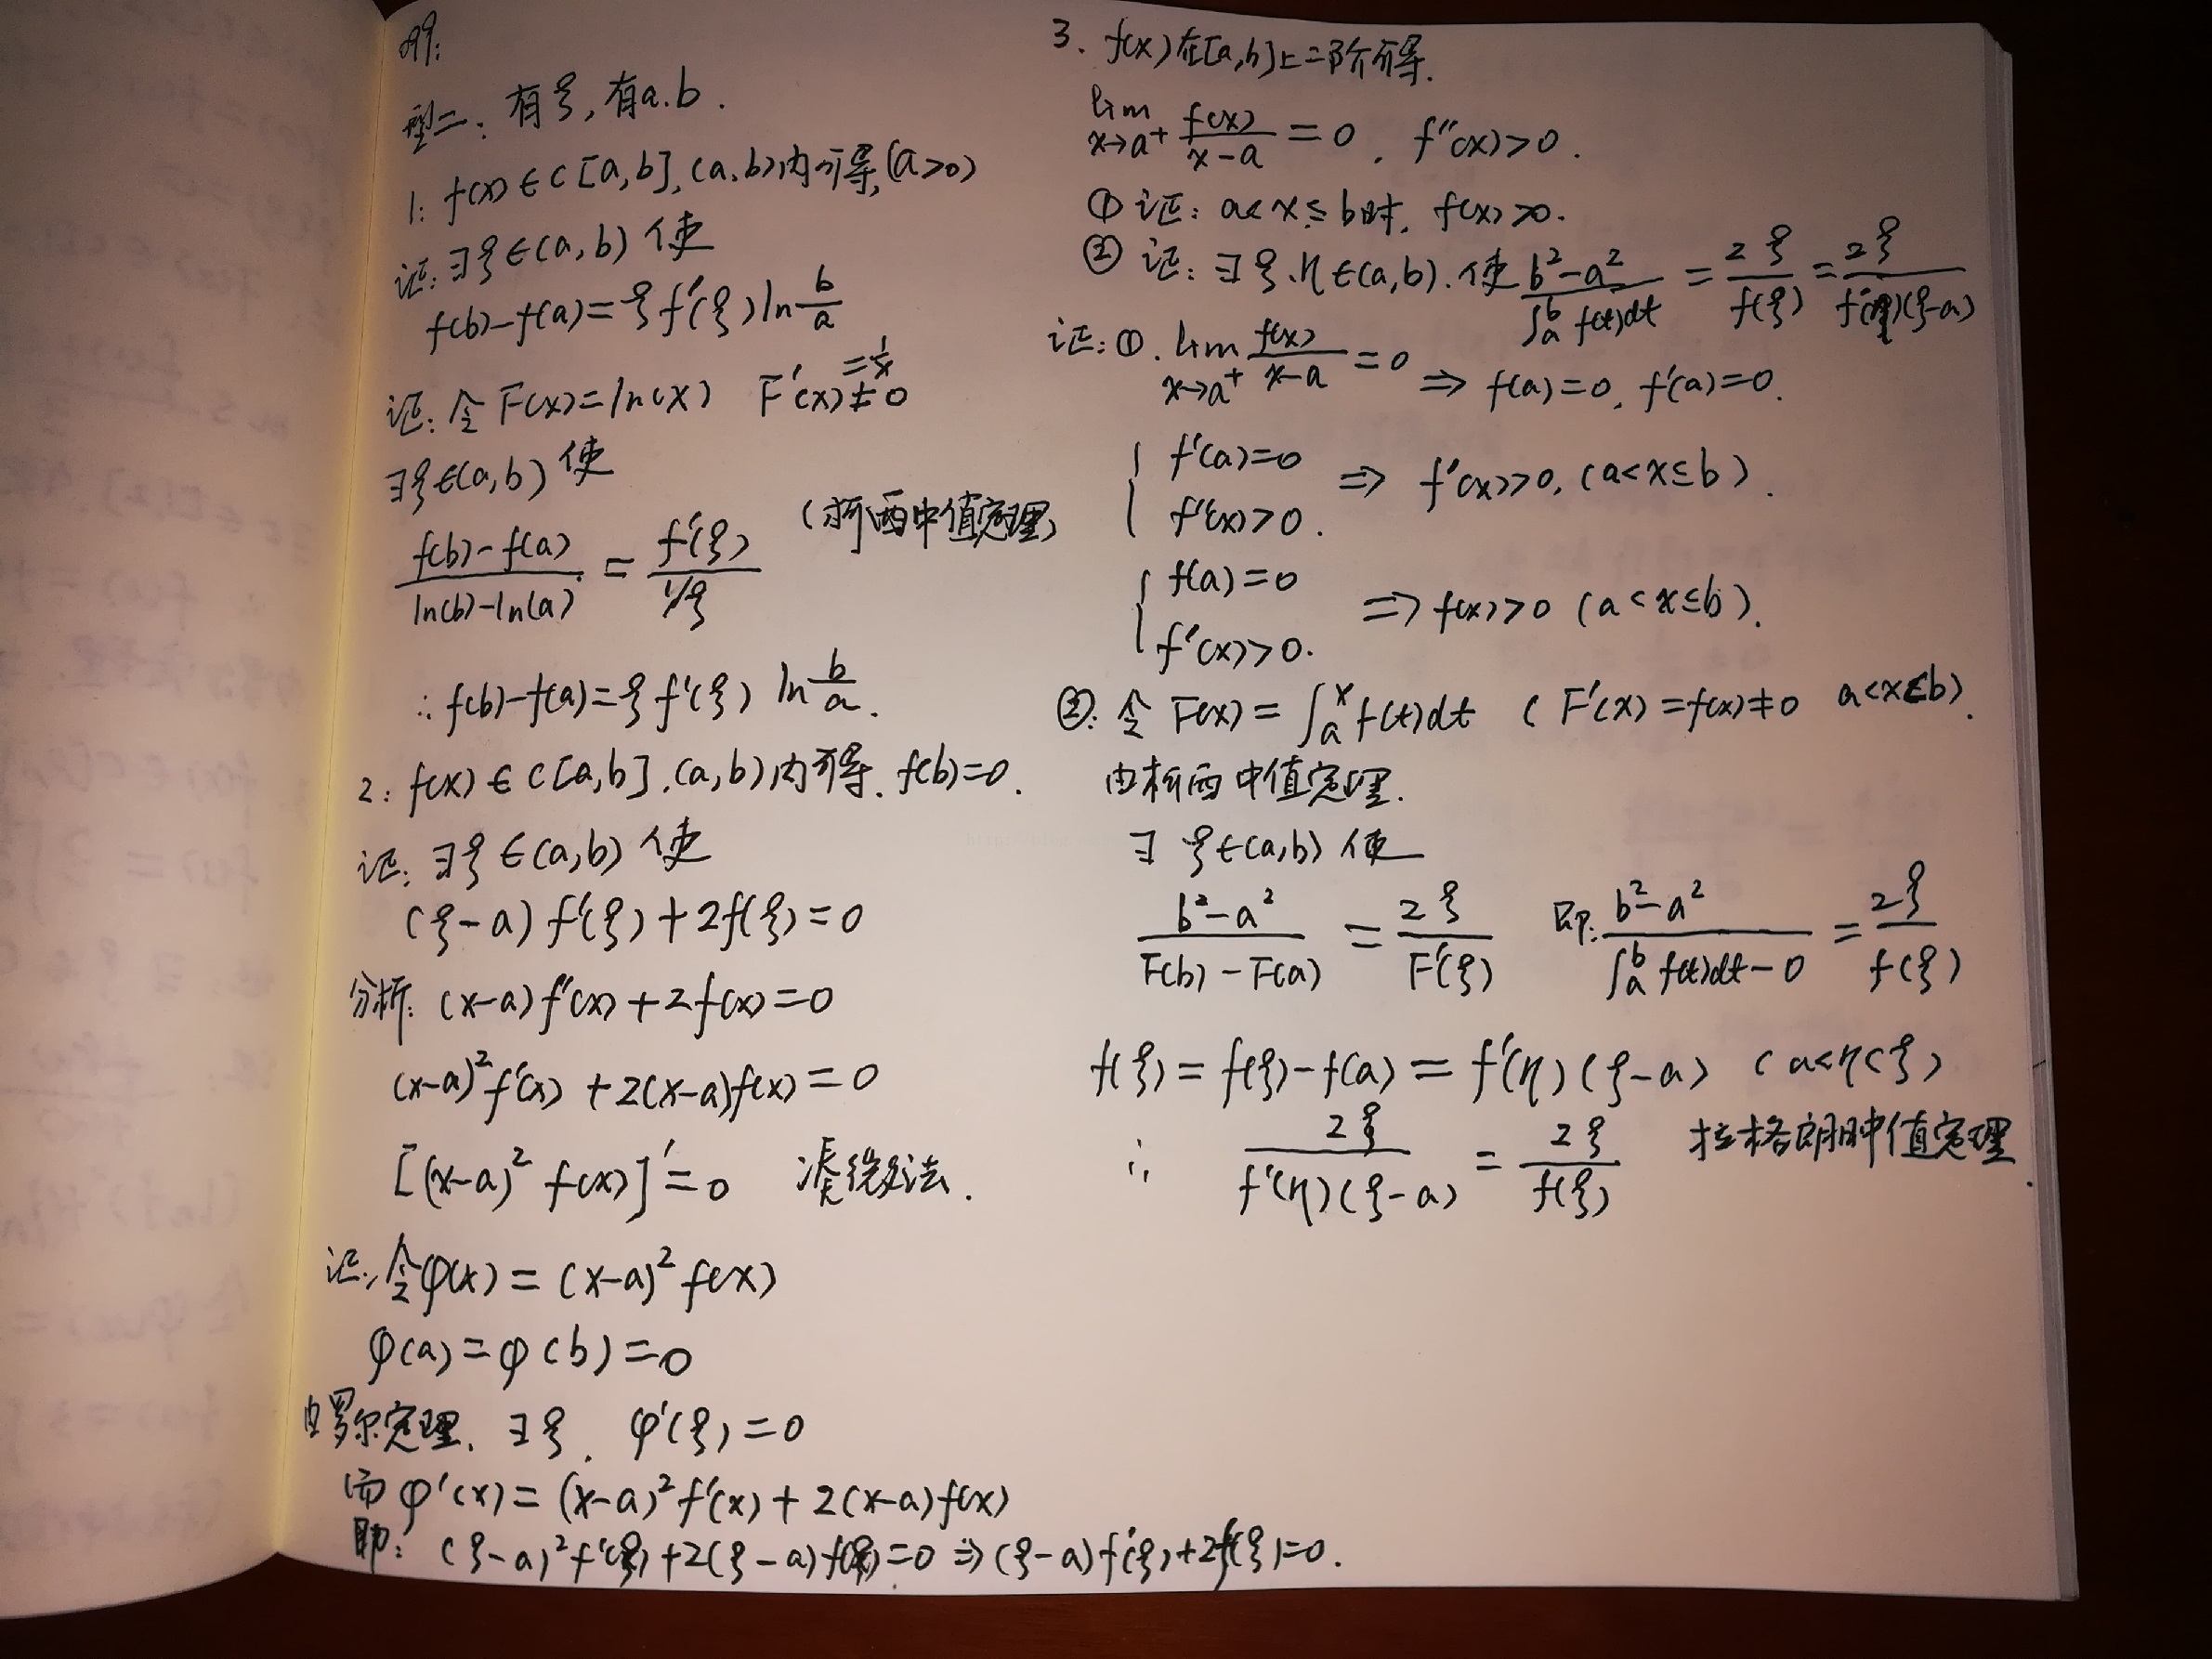 例:
型二: 有ξ, 有a.b.
1: f(x)∈C[a,b], (a,b)内可导, (a>0)
证: ∃ξ∈(a,b) 使
f(b)-f(a)=ξf'(ξ)ln b/a
证: 令F(x)=ln(x) F'(x)=1/x≠0
∃ξ∈(a,b) 使
(f(b)-f(a))/(ln(b)-ln(a)) = f'(ξ)/(1/ξ) (柯西中值定理)
∴ f(b)-f(a)=ξf'(ξ) ln b/a.
2: f(x)∈C[a,b], (a,b)内可导. f(b)=0.
证: ∃ξ∈(a,b) 使
(ξ-a)f'(ξ)+2f(ξ)=0
分析: (x-a)f'(x)+2f(x)=0
(x-a)²f'(x)+2(x-a)f(x)=0
[(x-a)²f(x)]'=0 凑微分法.
证: 令φ(x)=(x-a)²f(x)
φ(a)=φ(b)=0
由罗尔定理, ∃ξ, φ'(ξ)=0
而φ'(x)=(x-a)²f'(x)+2(x-a)f(x)
即: (ξ-a)²f'(ξ)+2(ξ-a)f(ξ)=0 ⇒ (ξ-a)f'(ξ)+2f(ξ)=0.
3. f(x)在[a,b]上二阶可导.
lim x→a⁺ f(x)/(x-a) = 0, f''(x)>0.
① 证: a<x≤b时, f(x)>0.
② 证: ∃ξ、η∈(a,b). 使 (b²-a²)/∫ₐᵇf(t)dt = 2ξ/f(ξ) = 2ξ/f'(η)(ξ-a)
证: ①. lim x→a⁺ f(x)/(x-a) = 0 ⇒ f(a)=0, f'(a)=0.
{ f'(a)=0
f''(x)>0. ⇒ f'(x)>0, (a<x≤b).
{ f(a)=0
f'(x)>0. ⇒ f(x)>0 (a<x≤b).
②: 令F(x)=∫ₐˣf(t)dt (F'(x)=f(x)≠0 a<x≤b).
由柯西中值定理.
∃ξ∈(a,b) 使
(b²-a²)/(F(b)-F(a)) = 2ξ/F'(ξ) 即: (b²-a²)/(∫ₐᵇf(t)dt-0) = 2ξ/f(ξ)
f(ξ)=f(ξ)-f(a)=f'(η)(ξ-a) (a<η<ξ)
∴ 2ξ/f'(η)(ξ-a) = 2ξ/f(ξ) 拉格朗日中值定理.